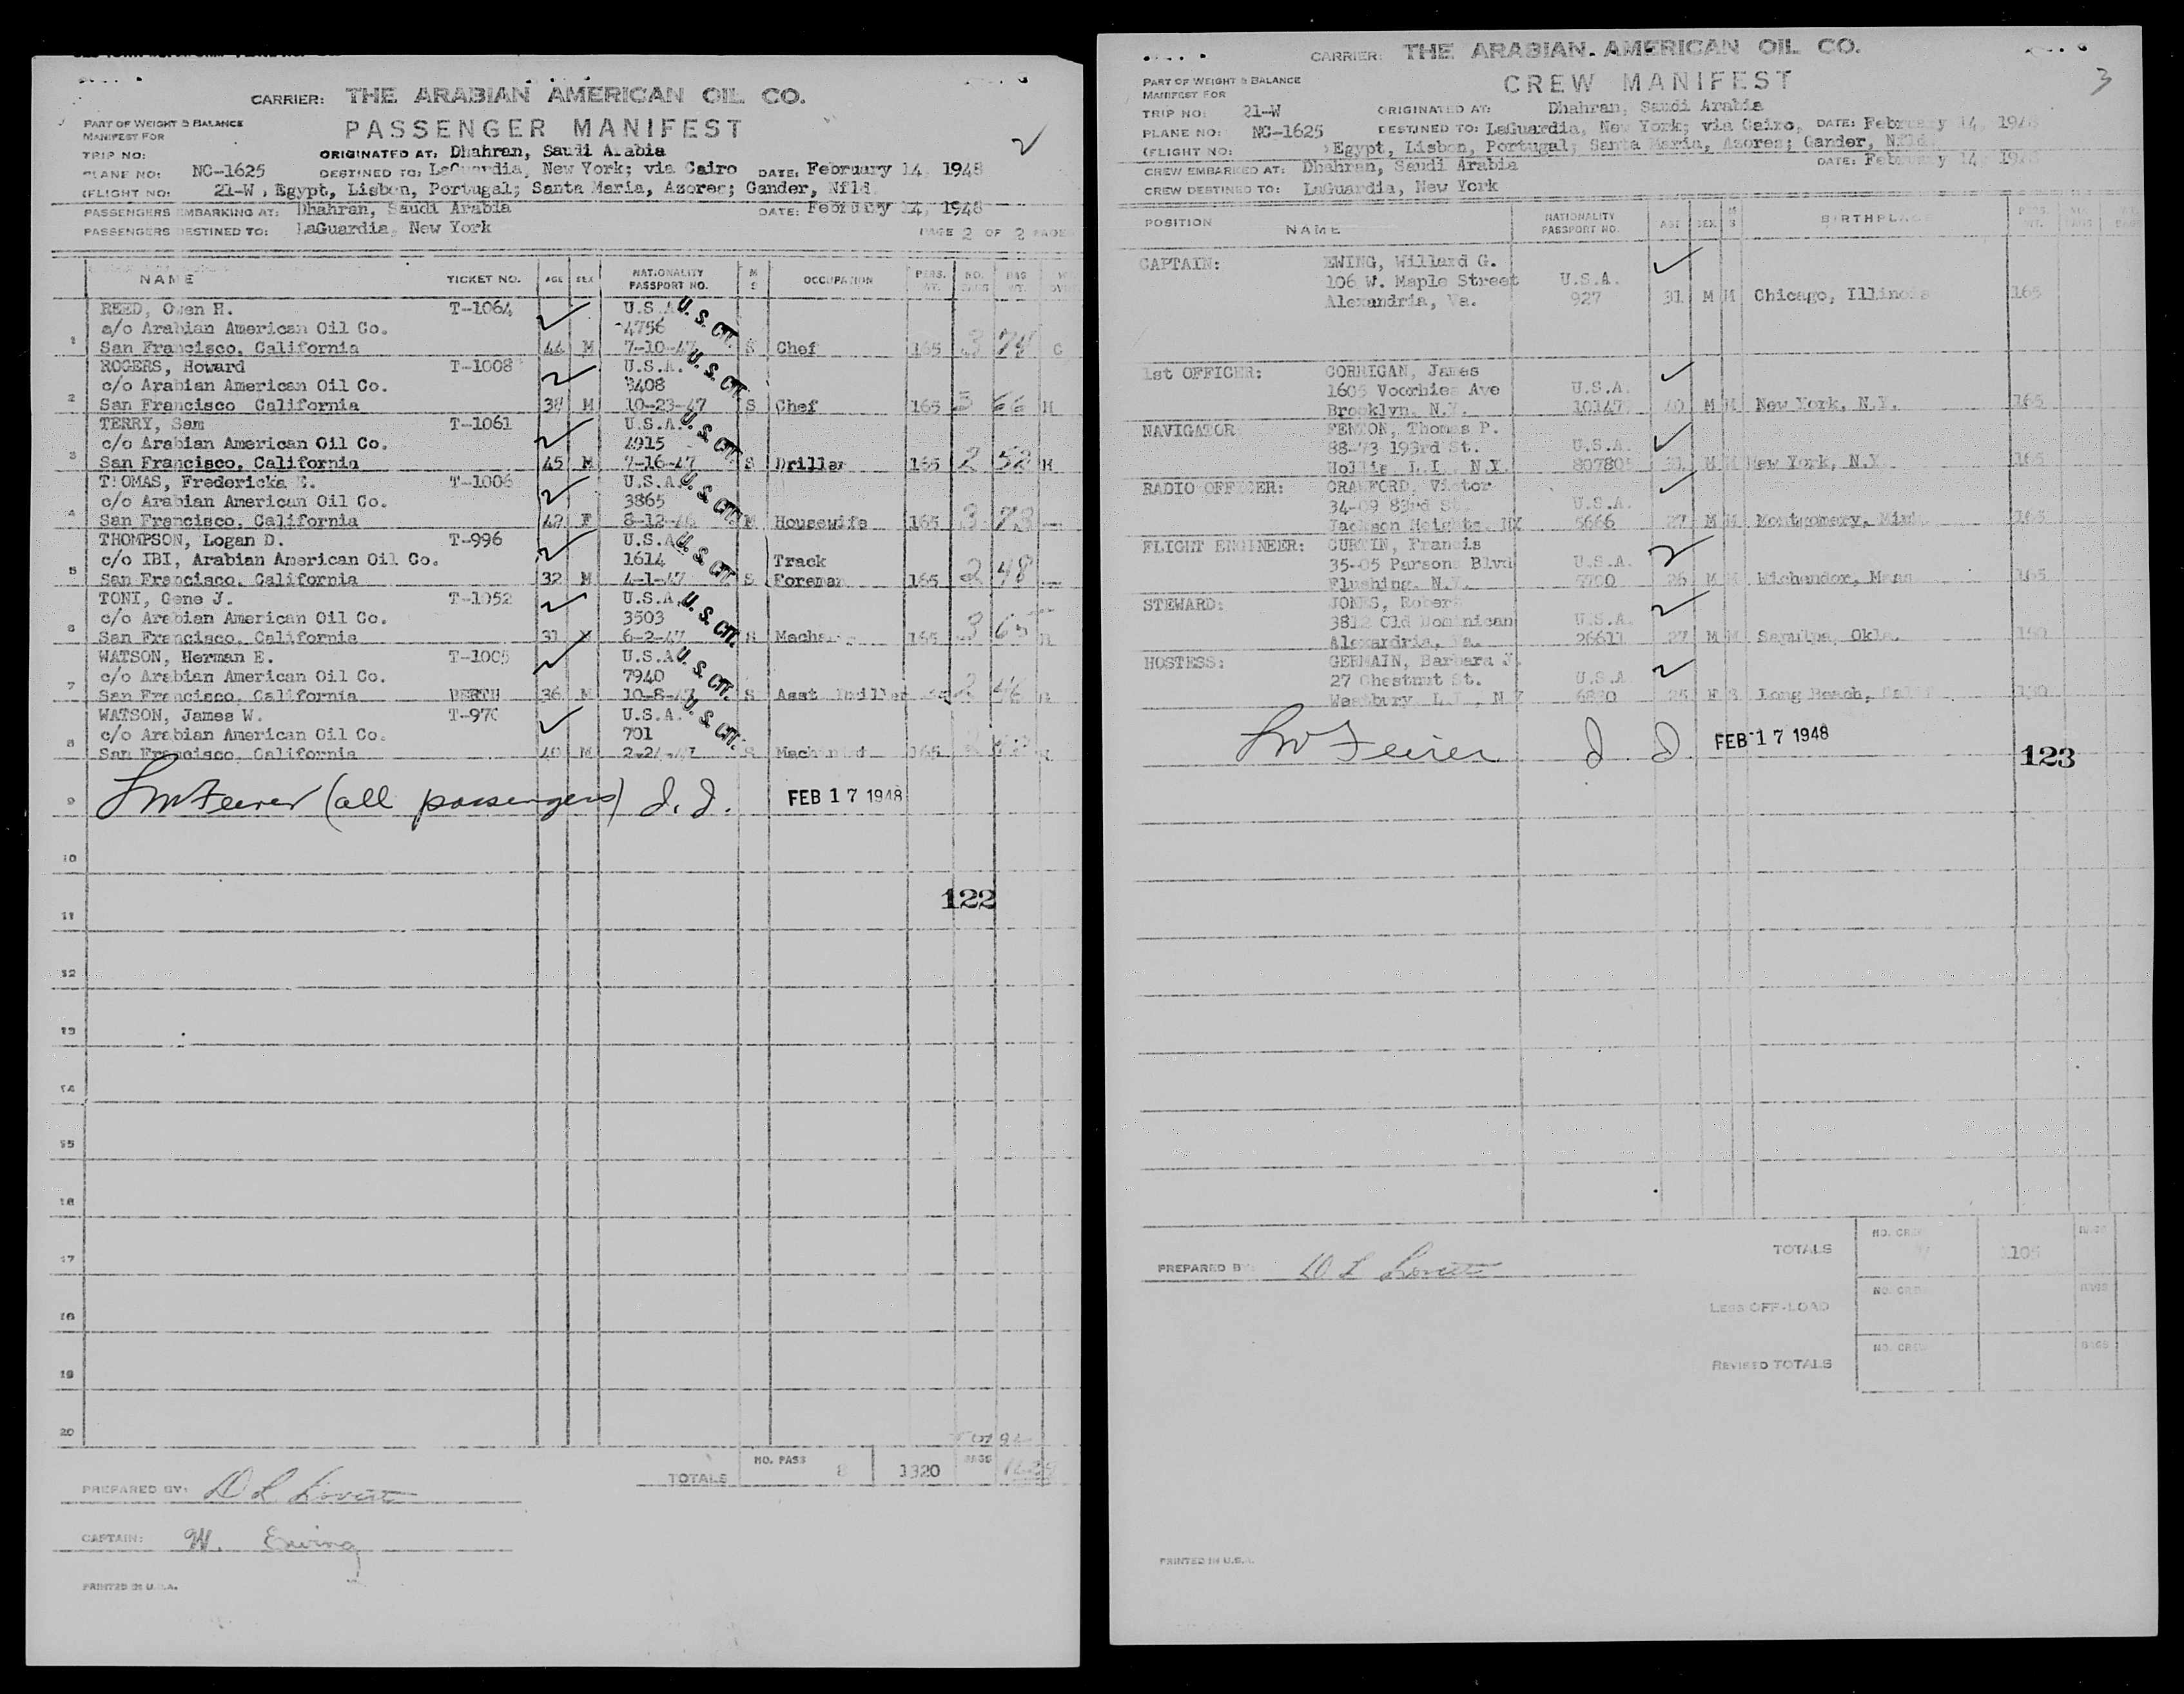 CARRIER: THE ARABIAN AMERICAN OIL CO.
PART OF WEIGHT & BALANCE
MANIFEST FOR
PASSENGER MANIFEST
TRIP NO:
ORIGINATED AT: Dhahran, Saudi Arabia
PLANE NO: NC-1625 DESTINED TO: LaGuardia, New York; via Cairo DATE: February 14, 1948
(FLIGHT NO: 21-W, Egypt, Lisbon, Portugal; Santa Maria, Azores; Gander, Nfld
PASSENGERS EMBARKING AT: Dhahran, Saudi Arabia DATE: February 14, 1948
PASSENGERS DESTINED TO: LaGuardia, New York PAGE 2 OF 2 PAGES
NAME TICKET NO. AGE SEX NATIONALITY PASSPORT NO. M S OCCUPATION PERS. WT. NO. BAGS BAG WT.
REED, Owen H. T-1064 U.S.A. U.S. CIT.
c/o Arabian American Oil Co. 4756
1 San Francisco, California 44 M 7-10-47 S Chef 165 3 74 C
ROGERS, Howard T-1008 U.S.A. U.S. CIT.
c/o Arabian American Oil Co. 3408
2 San Francisco California 38 M 10-23-47 S Chef 165 3 66 H
TERRY, Sam T-1061 U.S.A. U.S. CIT.
c/o Arabian American Oil Co. 4915
3 San Francisco, California 45 M 7-16-47 S Driller 165 2 52 H
THOMAS, Fredericka E. T-1006 U.S.A. U.S. CIT.
c/o Arabian American Oil Co. 3865
4 San Francisco, California 42 F 8-12-46 M Housewife 165 3 73
THOMPSON, Logan D. T-996 U.S.A. U.S. CIT.
c/o IBI, Arabian American Oil Co. 1614 Track
5 San Francisco, California 32 M 4-1-47 S Foreman 165 2 48
TONI, Gene J. T-1052 U.S.A. U.S. CIT.
c/o Arabian American Oil Co. 3503
6 San Francisco, California 31 M 6-2-47 165 3 65
WATSON, Herman E. T-1005 U.S.A. U.S. CIT.
c/o Arabian American Oil Co. 7940
7 San Francisco, California BERTH 36 M 10-8-47 S Asst Driller 2 46
WATSON, James W. T-970 U.S.A. U.S. CIT.
c/o Arabian American Oil Co. 701
8 San Francisco, California 40 M 2-24-47 S Machinist 165
9 (all passengers) FEB 17 1948
10
122
11
12
13
14
15
16
17
18
19
20
TOTALS NO. PASS 8 1320 BAGS
PREPARED BY:
CAPTAIN: W. Ewing
PRINTED IN U.S.A.
CARRIER: THE ARABIAN AMERICAN OIL CO.
PART OF WEIGHT & BALANCE
MANIFEST FOR
CREW MANIFEST 3
TRIP NO: 21-W ORIGINATED AT: Dhahran, Saudi Arabia
PLANE NO: NC-1625 DESTINED TO: LaGuardia, New York; via Cairo, DATE: February 14, 1948
(FLIGHT NO: Egypt, Lisbon, Portugal; Santa Maria, Azores; Gander, Nfld.
CREW EMBARKED AT: Dhahran, Saudi Arabia DATE: February 14, 1948
CREW DESTINED TO: LaGuardia, New York
POSITION NAME NATIONALITY PASSPORT NO. AGE SEX M S BIRTHPLACE PERS. WT.
CAPTAIN: EWING, Willard G.
106 W. Maple Street U.S.A.
Alexandria, Va. 927 31 M M Chicago, Illinois 165
1st OFFICER: CORRIGAN, James
1605 Voorhies Ave U.S.A.
Brooklyn, N.Y. 40 M M New York, N.Y. 165
NAVIGATOR FENTON, Thomas P.
88-73 193rd St. U.S.A.
Hollis, L.I., N.Y. 31 M M New York, N.Y. 165
RADIO OFFICER: CRAWFORD, Victor
34-09 83rd St. U.S.A.
Jackson Heights, NY 5666 27 M M Montgomery, 165
FLIGHT ENGINEER: CURTIN, Francis
35-05 Parsons Blvd U.S.A.
Flushing, N.Y. 26 M 165
STEWARD: JONES, Robert
3812 Old Dominican U.S.A.
Alexandria, Va. 26611 27 M M Sapulpa, Okla.
HOSTESS: GERMAIN, Barbara J.
27 Chestnut St. U.S.A.
Westbury L.I., N.Y. 25 F S Long Beach, Calif 130
FEB 17 1948
123
TOTALS NO. CREW
PREPARED BY:
LESS OFF-LOAD NO. CREW BAGS
REVISED TOTALS NO. CREW BAGS
PRINTED IN U.S.A.